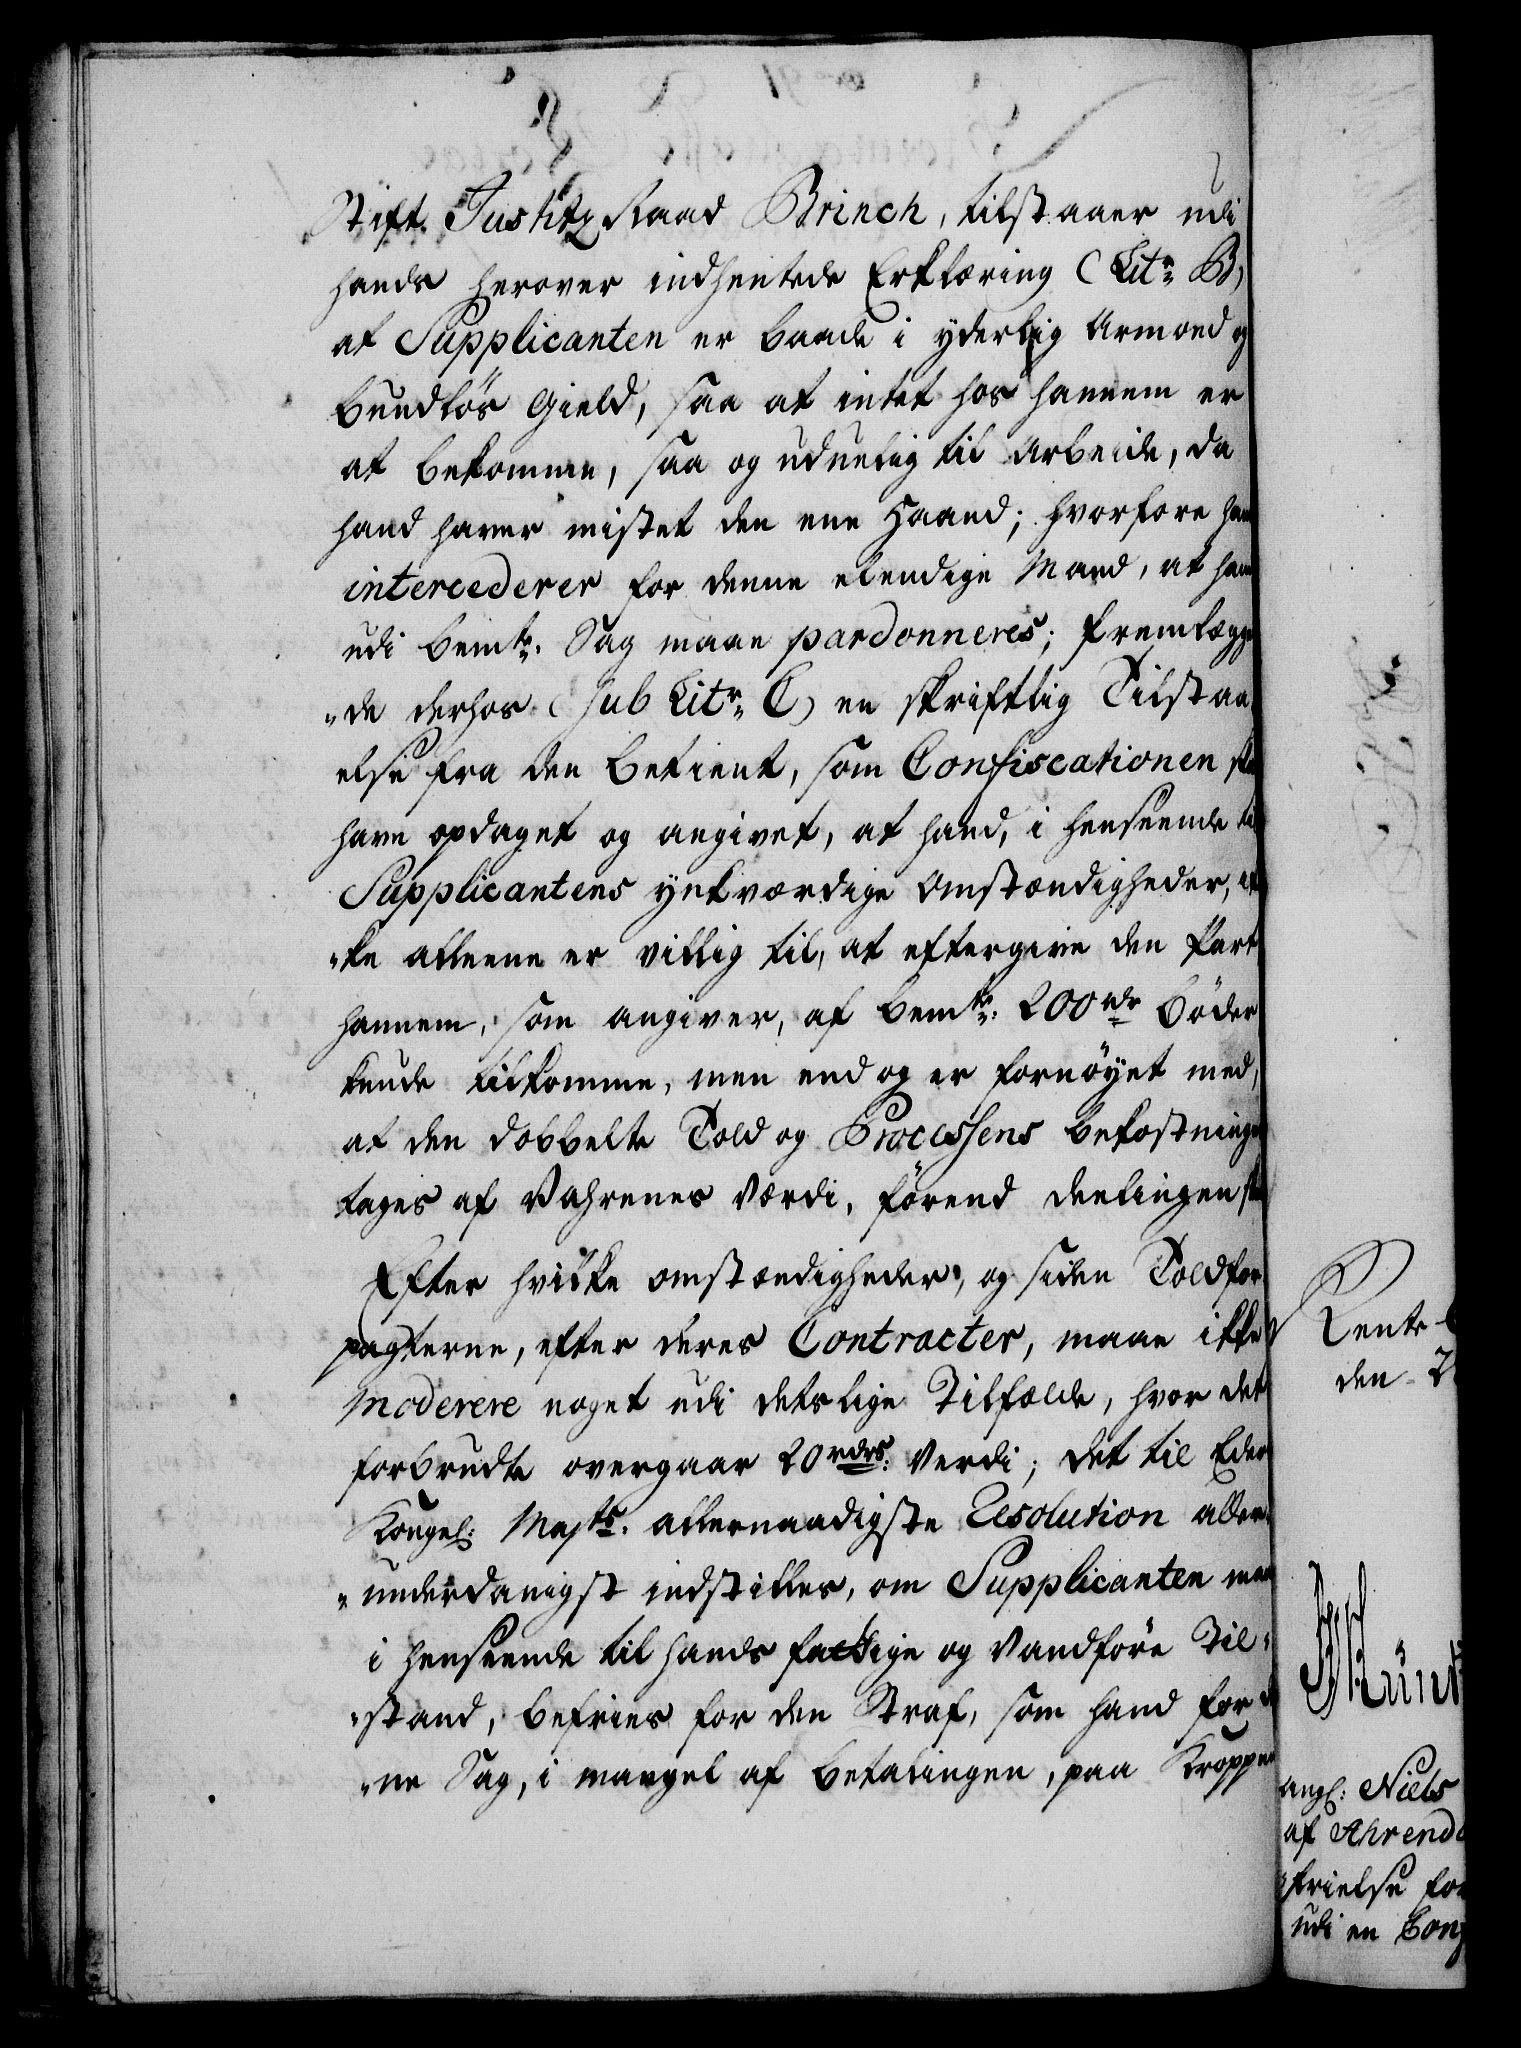 Stift Justitz Raad Brinch, tilstaaer udi
hands herover indhentede Erklæring (Litr B)
at Supplicanten er baade i yderlig Armoed og
bundlös Gield, saa at intet hos hannem er
at bekomme, saa og uduelig til Arbeide, da
hand haver mistet den ene Haand; hvorfore hand
intercederer for denne elendige Mand, at hand
udi bemte Sag maae pardonneres; fremlægge
"de derhos (sub Litr C) en skriftlig Tilstaa
else fra den Betient, som Confiscationen ska
have opdaget og angivet, at hand, i henseende til
Supplicantens ynkværdige Omstændigheder, ik
"ke alleene er villig til, at eftergive den Part
hannem, som angiver, af bemte 200 rdr Böder
kunde tilkomme, men end og er fornöyet med,
at den dobbelte Told og Processens bekostninge
tages af Vahrenes Værdi, förend deelingen skeer
Efter hvilke omstændigheder, og siden Toldfor
pagterne, efter deres Contracter, maae ikke
moderere noget udi deslige Tilfælde, hvor det
forbrudte overgaar 20 rdrs: Verdi; det til Eders
Kongel: Majts. allernaadigste Resolution aller
"underdanigst indstilles, om Supplicanten maa
i henseende til hands fattige og Vandföre Til"
"stand, befries for den Straf, som hand for den
"ne Sag, i mangel af betalingen, paa Kroppen
Rente-C
den 2
Niels
af Ahrend
frielse for
udi en Con